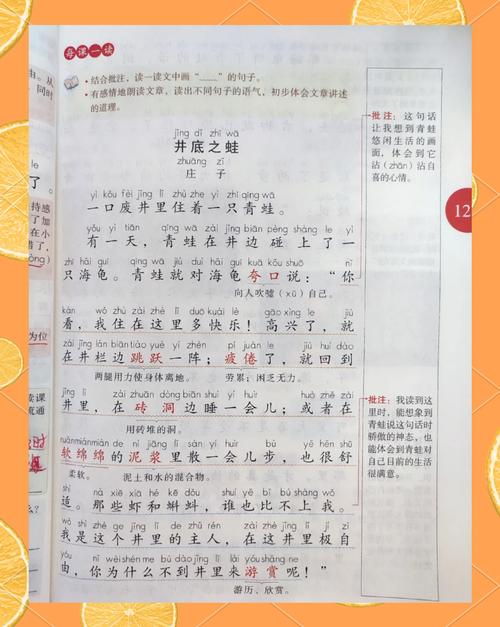 每课一读
由。从
同时
结合批注，读一读文中画“____”的句子。
有感情地朗读文章，读出不同句子的语气，初步体会文章讲述
的道理。
jǐng dǐ zhī wā
井底之蛙
zhuāng zǐ
庄子
yì kǒu fèi jǐng lǐ zhù zhe yì zhī qīng wā
一口废井里住着一只青蛙。
yǒu yì tiān qīng wā zài jǐng biān pèng shàng le yì
有一天，青蛙在井边碰上了一
zhī hǎi guī qīng wā jiù duì hǎi guī kuā kǒu shuō nǐ
只海龟。青蛙就对海龟夸口说：“你
向人吹嘘（xū）自己。
kàn wǒ zhù zài zhè lǐ duō kuài lè gāo xìng le jiù
看，我住在这里多快乐！高兴了，就
zài jǐng lán biān tiào yuè yí zhèn pí juàn le jiù huí dào
在井栏边跳跃一阵；疲倦了，就回到
两腿用力使身体离地。 劳累；困乏无力。
jǐng lǐ zài zhuān dòng biān shuì yí huìr huò zhě zài
井里，在砖洞边睡一会儿；或者在
用砖堆的洞。
ruǎn mián mián de ní jiāng lǐ sàn yí huìr bù yě hěn shū
软绵绵的泥浆里散一会儿步，也很舒
柔软。 泥土和水的混合物。
shì nà xiē xiā hé kē dǒu shuí yě bǐ bú shàng wǒ
适。那些虾和蝌蚪，谁也比不上我。
wǒ shì zhè ge jǐng lǐ de zhǔ rén zài zhè jǐng lǐ jí zì
我是这个井里的主人，在这井里极自
yóu nǐ wèi shén me bú dào jǐng lǐ lái yóu shǎng ne
由，你为什么不到井里来游赏呢！”
游历、欣赏。
批注：这句话
让我想到青蛙
悠闲生活的画
面，体会到它
沾（zhān）沾自
喜的心情。
12
批注：我读到这
里时，能想象到
青蛙说这句话时
骄傲的神态，也
能体会到青蛙对
自己目前的生活
很满意。